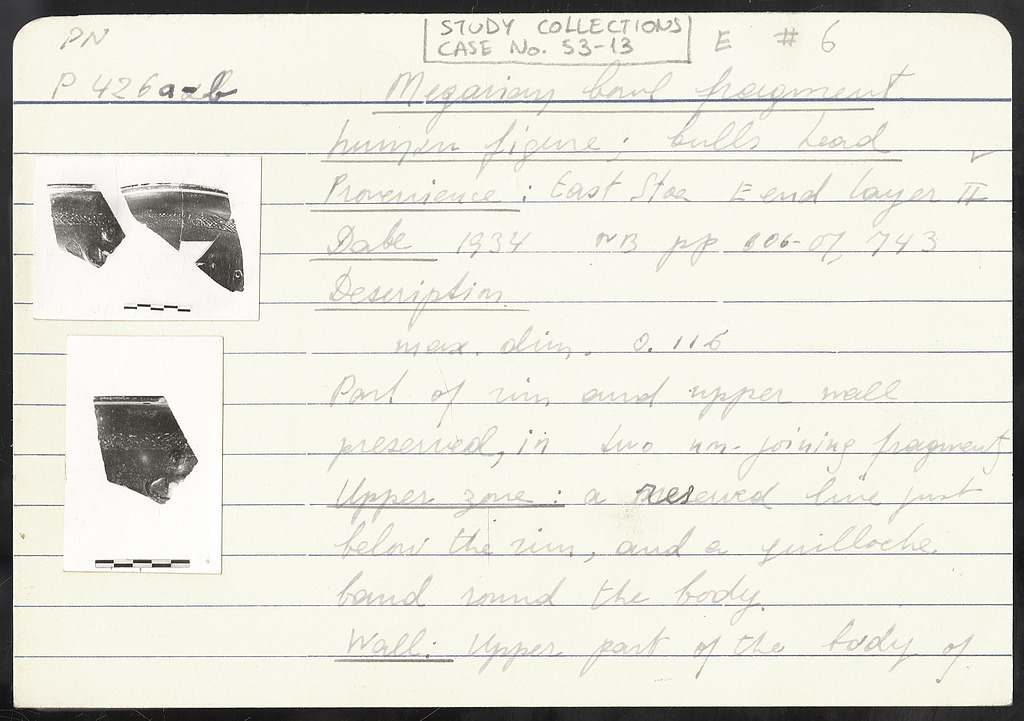 PN
STUDY COLLECTIONS
CASE No. 53-13
E # 6
P 426 a-b
Megarian bowl fragment
human figure; bulls head
Provenience: East Stoa E end Layer II
Date 1934 NB pp 743
Description
max. dim. 0.116
Part of rim and upper wall
preserved, in two non-joining fragments
Upper zone: a reserved line just
below the rim, and a guilloche
band round the body.
Wall: Upper part of the body of